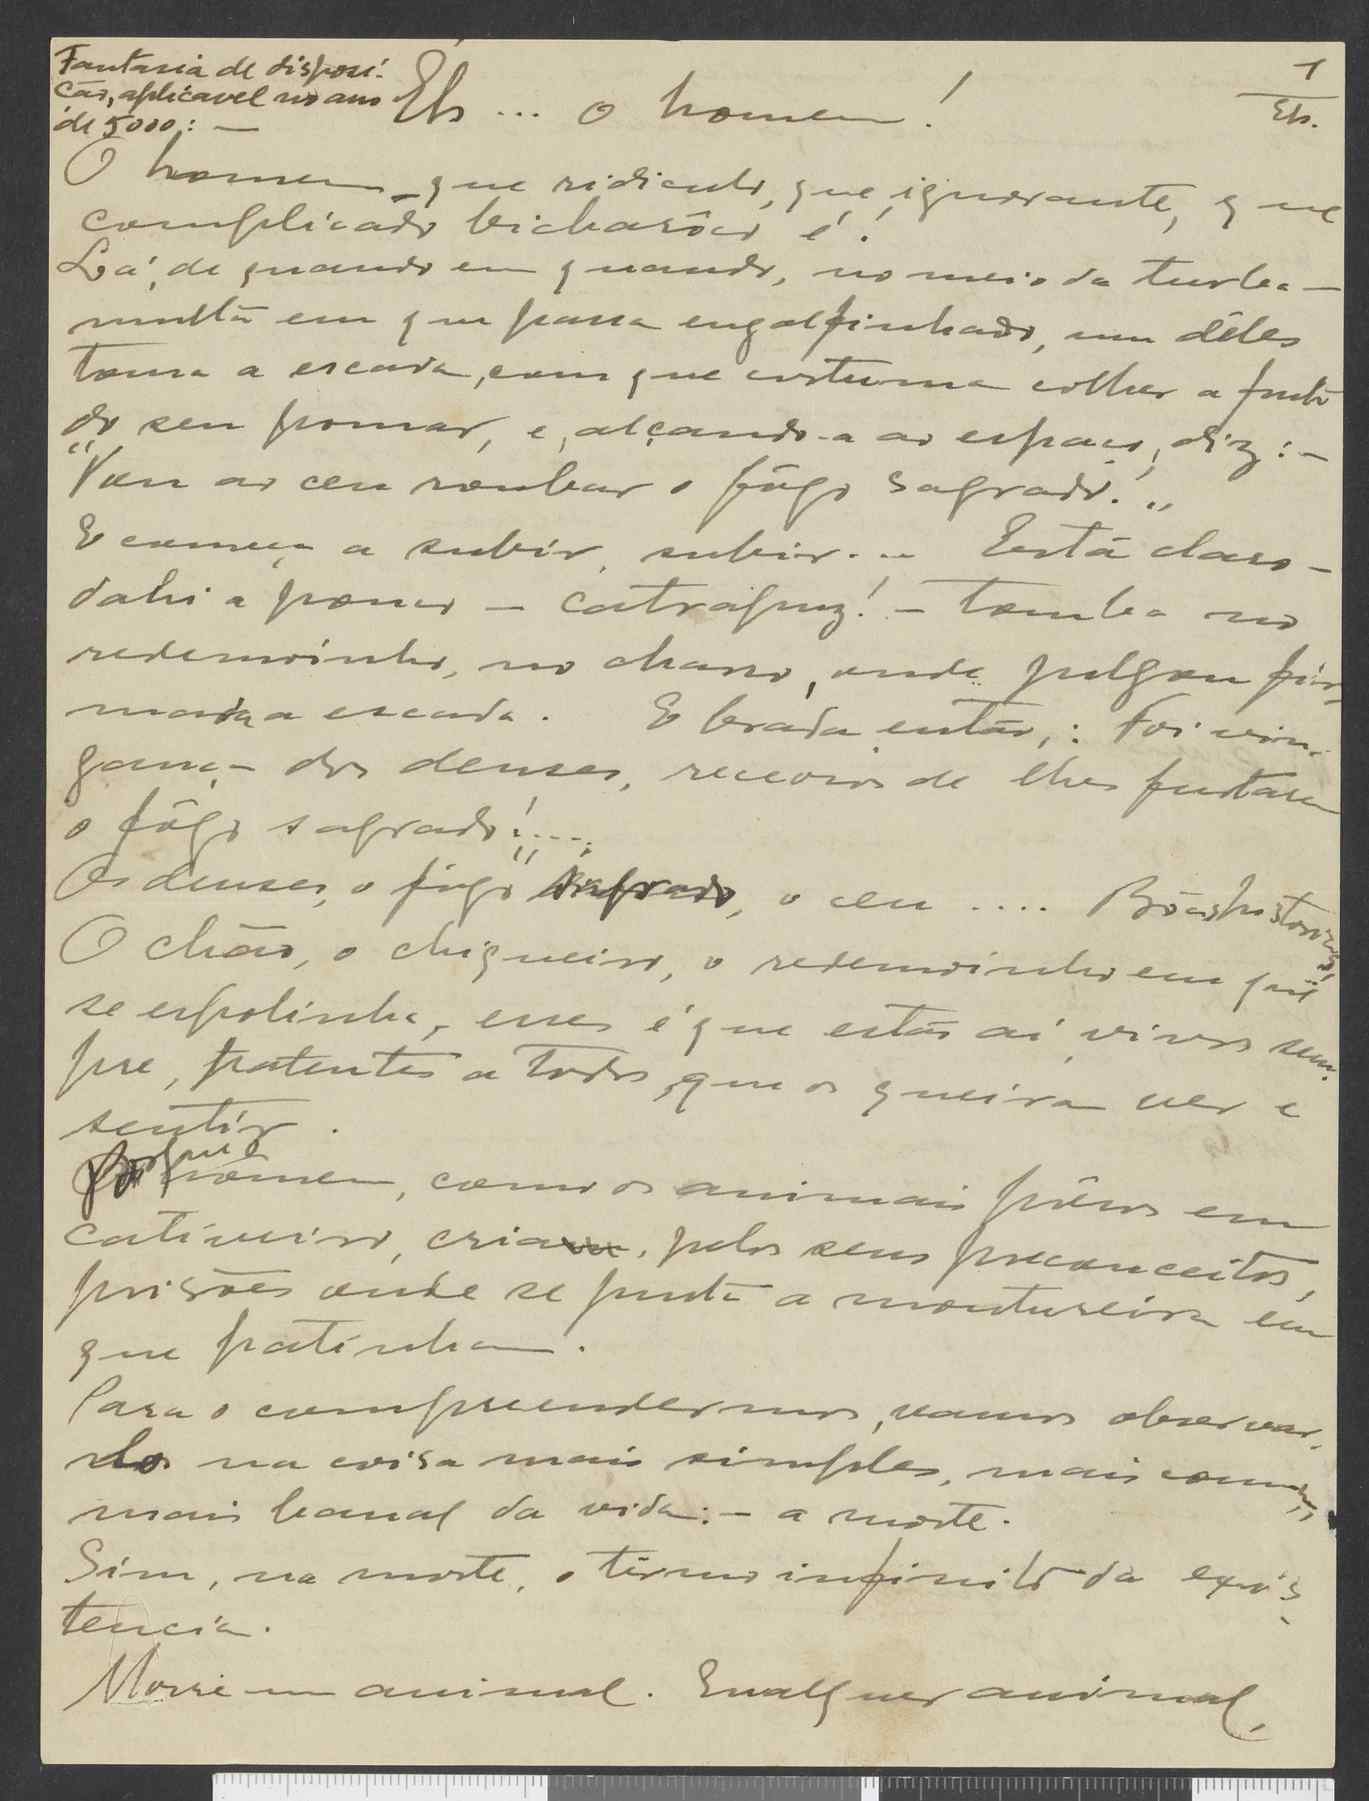 Fantasia de disposi-
ção, aplicavel no ano
de 5000: —
Eis ... o homem!
1
Eis.
O homem, que ridiculo, que ignorante, que
complicado bicharôco é!
Lá, de quando em quando, no meio da turba-
multa em que passa engalfinhado, um dêles
toma a escada, com que costuma colher a fruta
do seu pomar, e, alçando-a ao espaço, diz: —
"Vou ao ceu roubar o fôgo sagrado."
E começa a subir, subir... Está claro —
dahi a pouco — catrapuz! — tomba no
redemoinho, no charro, onde julgou fir-
mada a escada. E brada então,: Foi vin-
gança dos deuses, receosos de lhes furtarem
o fôgo sagrado!....
Os deuses, o fôgo sagrado, o ceu .... Bôas historias!
O chão, o chiqueiro, o redemoinho em que
se espolinha, esses é que estão aí, vivos sem-
pre, patentes a todos, que os queiram ver e
sentir.
Porque o homem, como os animais prêsos em
cativeiro, cria, pelos seus preconceitos,
prisões onde se junta a montureira em
que patinham.
Para o compreendermos, vamos observar-
lo na coisa mais simples, mais comum,
mais banal da vida: — a morte.
Sim, na morte, o têrmo infinito da exis-
tencia.
Morre um animal. Qualquer animal,